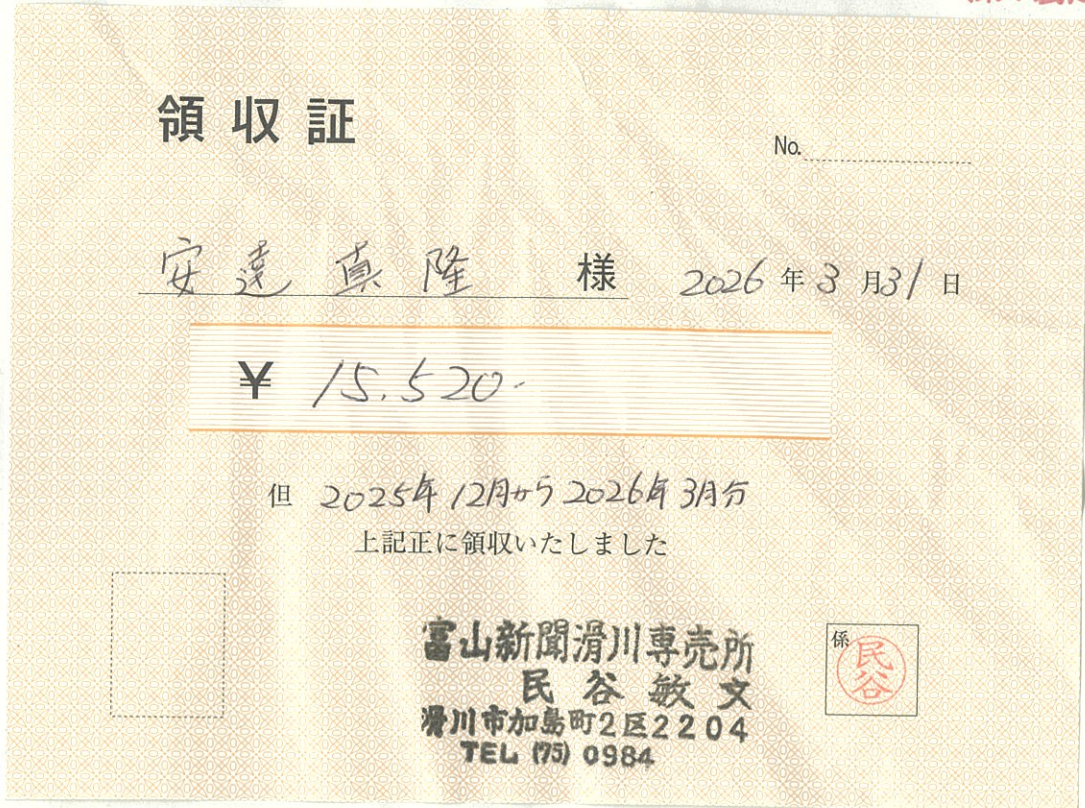 領収証
No.
安達 真隆 様 2026年3月31日
¥ 15,520-
但 2025年12月から2026年3月分
上記正に領収いたしました
富山新聞滑川専売所
民谷敏文
滑川市加島町2区2204
TEL (75) 0984
係
民谷